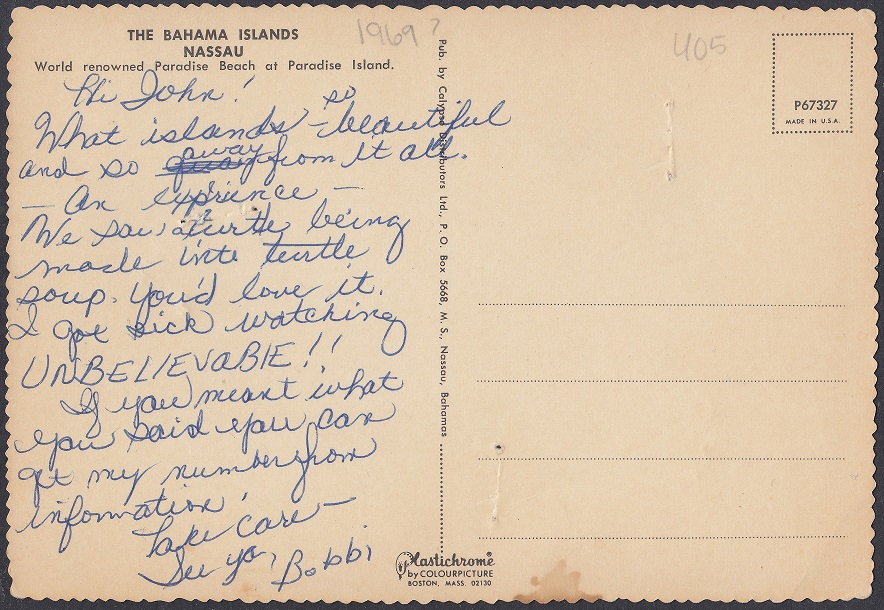 THE BAHAMA ISLANDS
NASSAU
World renowned Paradise Beach at Paradise Island.
Hi John!
so
What islands - beautiful
away
and so from it all.
- An exprience -
We saw a turtle being
made into turtle
soup. You'd love it.
I got sick watching
UNBELIEVABlE!!
If you meant what
you said you can
get my number from
information!
Take care -
See ya, Bobbi
Pub. by Calypso Distributors Ltd., P. O. Box 5668, M. S., Nassau, Bahamas
Plastichrome®
by COLOURPICTURE
BOSTON, MASS. 02130
1969?
405
P67327
MADE IN U.S.A.